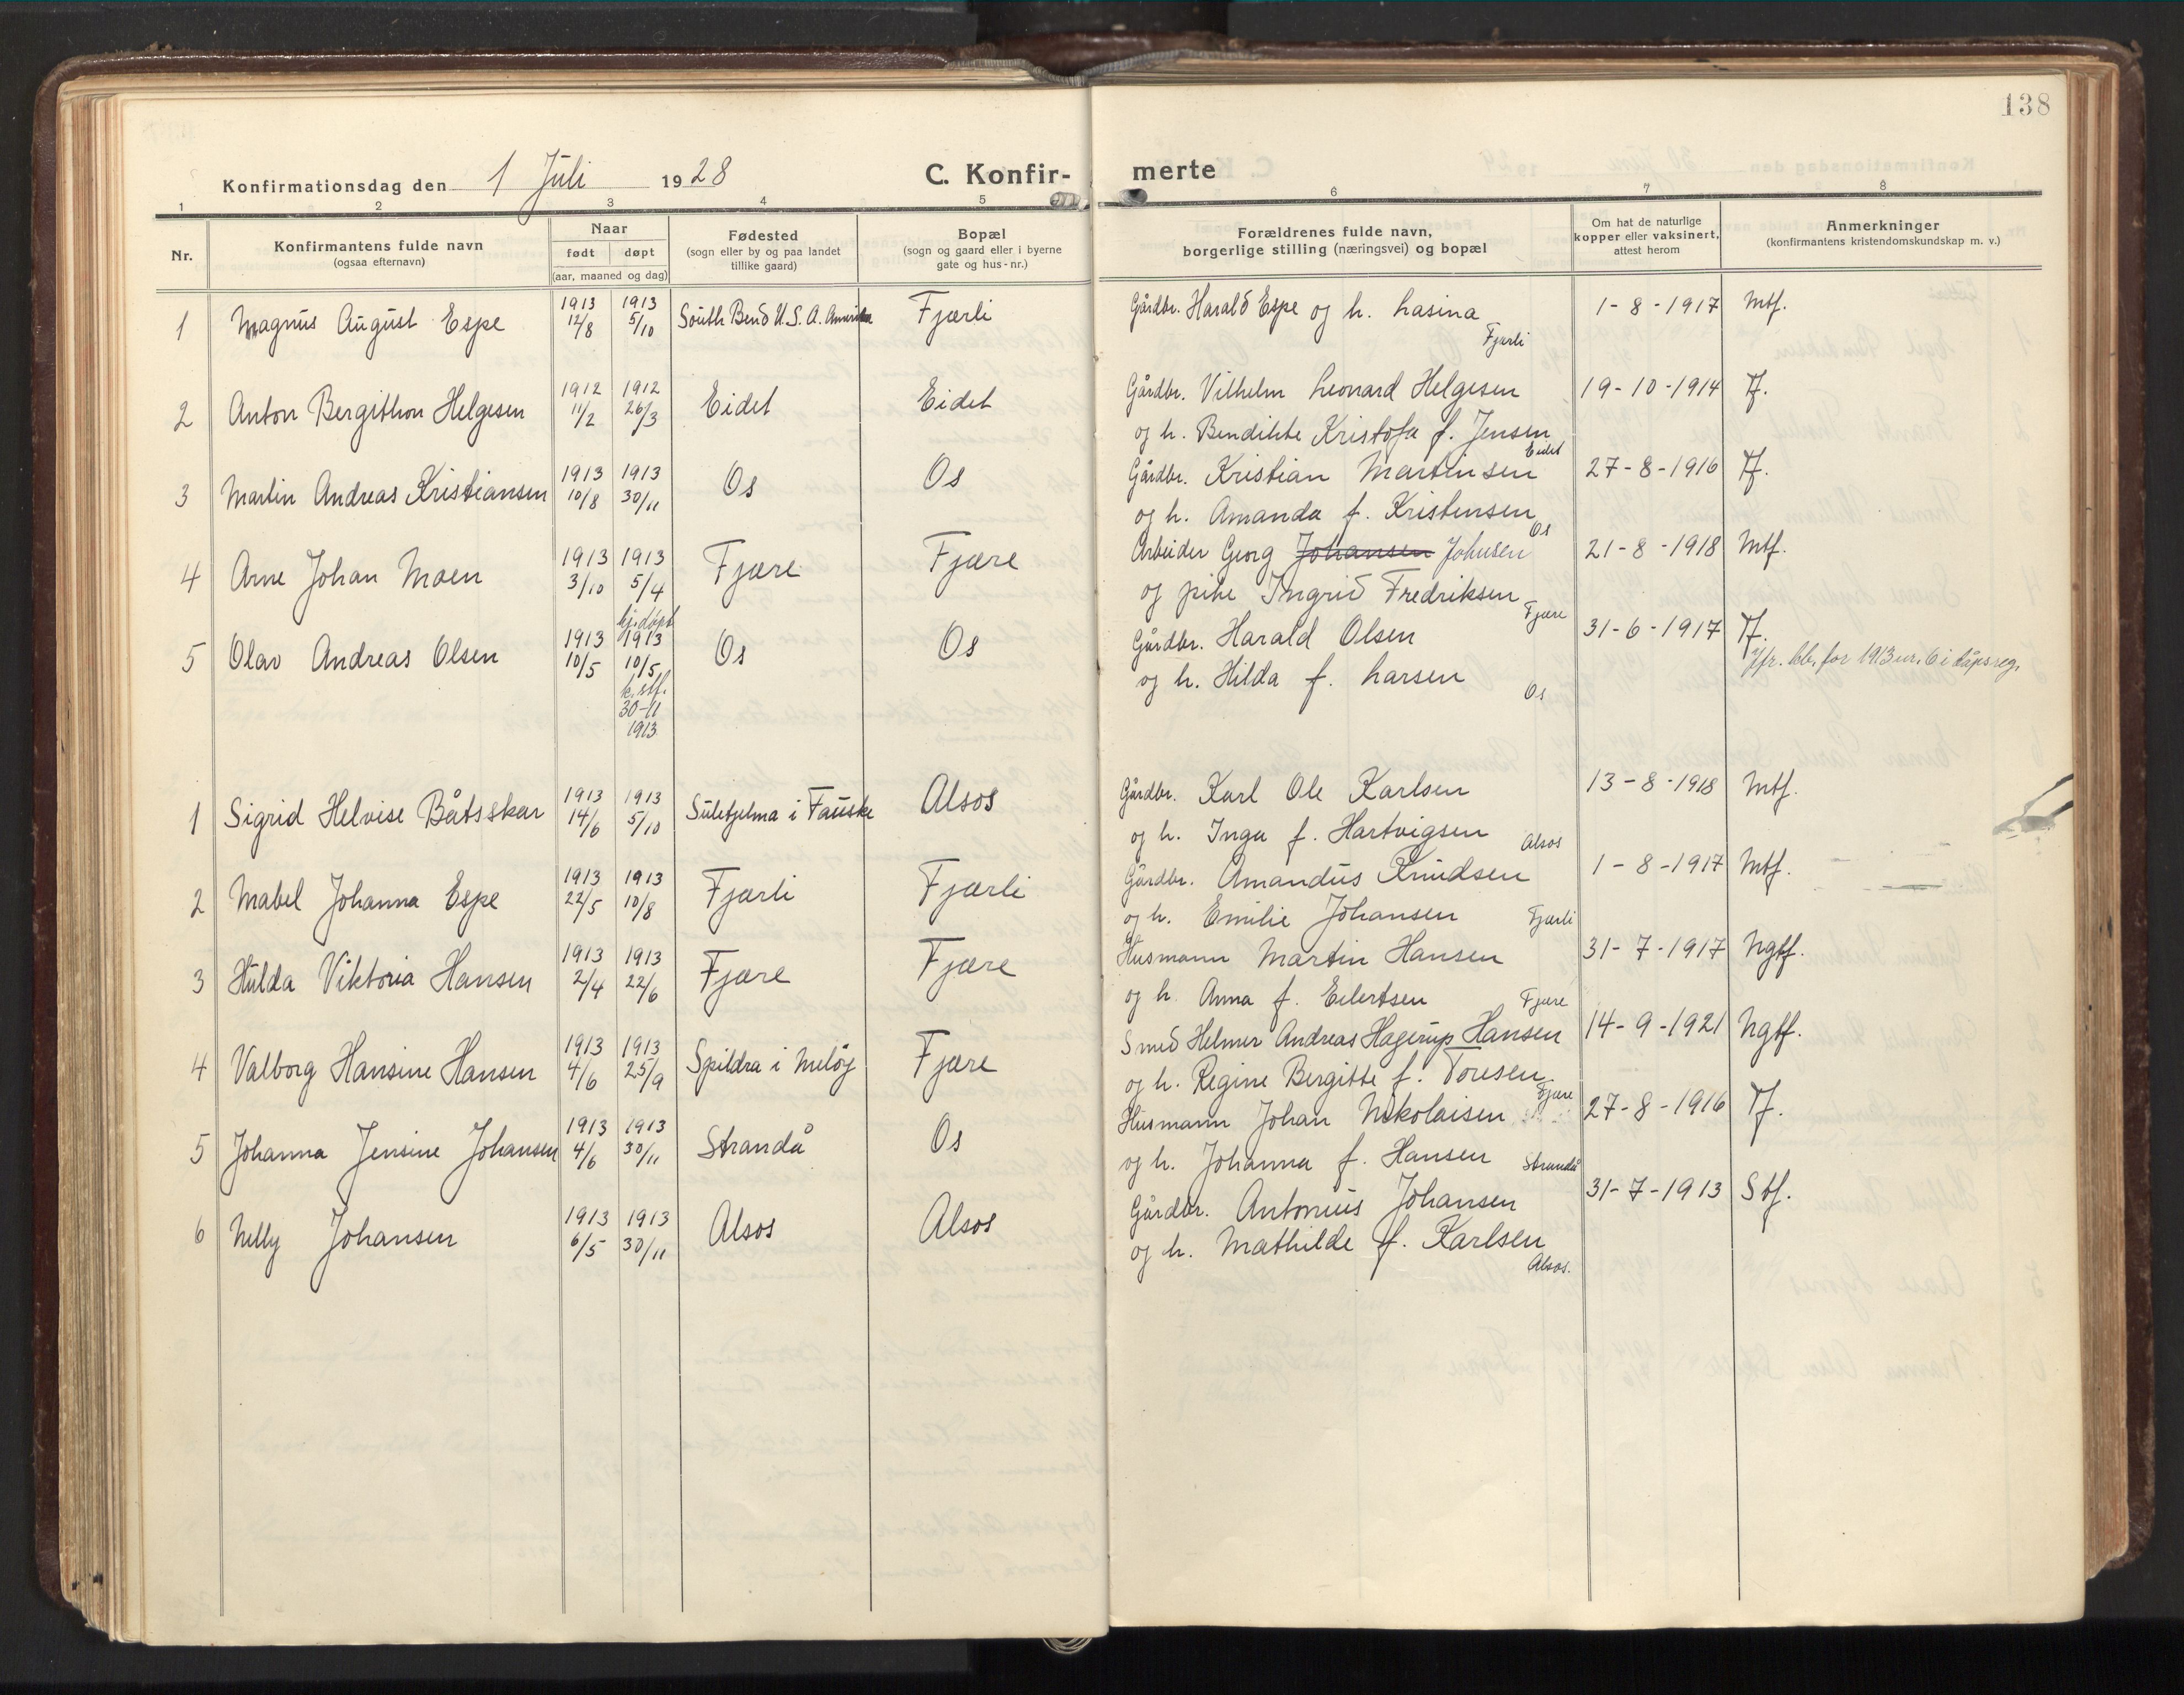 138
Konfirmationsdag den 1 Juli 1928 C. Konfir- merte
1 2 3 4 5 6 7 8
Nr.
Konfirmantens fulde navn
(ogsaa efternavn)
Naar
født døpt
(aar, maaned og dag)
Fødested
(sogn eller by og paa landet
tillike gaard)
Bopæl
(sogn og gaard eller i byerne
gate og hus-nr.)
Forældrenes fulde navn,
borgerlige stilling (næringsvei) og bopæl
Om hat de naturlige
kopper eller vaksinert,
attest herom
Anmerkninger
(konfirmantens kristendomskundskap m. v.)
1 Magnus August Espe 1913 12/8 1913 5/10 South Bend U.S.A. Amerika Fjærli Gårdbr. Harald Espe og h. Lasina 1-8-1917 Mtf.
Fjærli
2 Anton Bergithon Helgesen 1912 11/2 1912 26/3 Eidet Eidet Gårdbr. Vilhelm Leonard Helgesen 19-10-1914 Tf.
og h. Bendikte Kristofa f. Jensen
Eidet
3 Martin Andreas Kristiansen 1913 10/8 1913 30/11 Os Os Gårdbr. Kristian Martinsen 27-8-1916 Tf.
og h. Amanda f. Kristensen
Os
4 Arne Johan Moen 1913 3/10 1913 5/4 Fjære Fjære Arbeider Georg Johansen Johnsen 21-8-1918 Mtf.
og pike Ingrid Fredriksen
Fjære
5 Olav Andreas Olsen 1913 10/5 hj.døpt 1913 10/5 Os Os Gårdbr. Harald Olsen 31-6-1917 Tf.
k. stf.
30-11
1913
og h. Hilda f. Larsen
Os
kb. for 1913 nr. 6 i dåpsreg.
1 Sigrid Helvise Båtsskar 1913 14/6 1913 5/10 Sulitjelma i Fauske Alsos Gårdbr. Karl Ole Karlsen 13-8-1918 Mtf.
og h. Inga f. Hartvigsen
Alsos
2 Mabel Johanna Espe 1913 22/5 1913 10/8 Fjærli Fjærli Gårdbr. Amandus Knudsen 1-8-1917 Mtf.
og h. Emilie Johansen
Fjærli
3 Hulda Viktoria Hansen 1913 2/4 1913 22/6 Fjære Fjære Husmann Martin Hansen 31-7-1917 Ngtf.
og h. Anna f. Eilertsen
Fjære
4 Valborg Hansine Hansen 1913 4/6 1913 25/9 Spildra i Meløy Fjære Smed Helmer Andreas Hagerup Hansen 14-9-1921 Ngtf.
og h. Regine Bergitte f. Toresen
Fjære
5 Johanna Jensine Johansen 1913 4/6 1913 30/11 Strandå Os Husmann Johan Nikolaisen 27-8-1916 Tf.
og h. Johanna f. Hansen
Strandå
6 Nelly Johansen 1913 6/5 1913 30/11 Alsos Alsos Gårdbr. Antonius Johansen 31-7-1913 Stf.
og h. Mathilde f. Karlsen
Alsos.